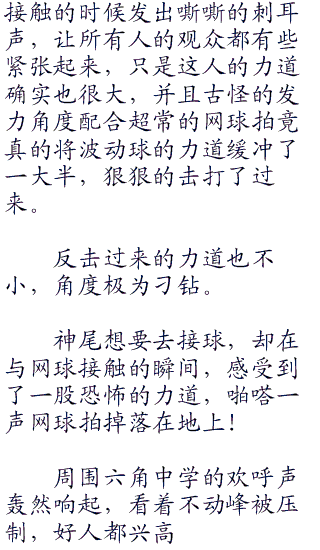 接触的时候发出嘶嘶的刺耳
声，让所有人的观众都有些
紧张起来，只是这人的力道
确实也很大，并且古怪的发
力角度配合超常的网球拍竟
真的将波动球的力道缓冲了
一大半，狠狠的击打了过
来。
反击过来的力道也不
小，角度极为刁钻。
神尾想要去接球，却在
与网球接触的瞬间，感受到
了一股恐怖的力道，啪嗒一
声网球拍掉落在地上！
周围六角中学的欢呼声
轰然响起，看着不动峰被压
制，好人都兴高